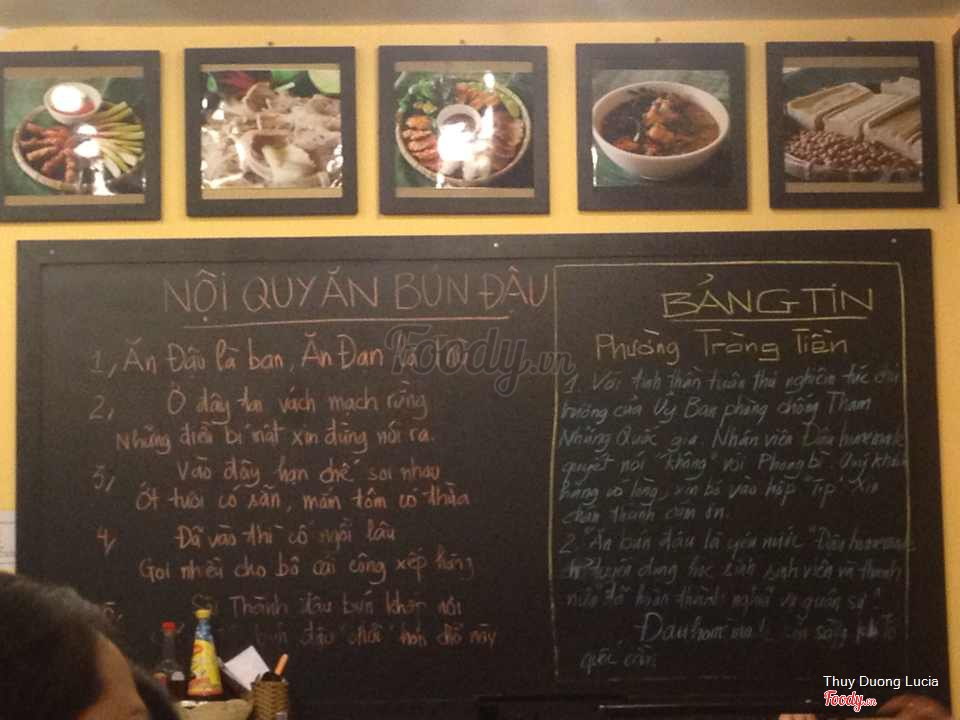 NỘI QUY ĂN BÚN ĐẬU
1, Ăn Đậu là bạn, Ăn Đạn là thù
2, Ở đây tai vách mạch rừng
Những điều bí mật xin đừng nói ra.
3, Vào đây hạn chế soi nhau
Ớt tươi có sẵn, mắm tôm có thừa
4, Đã vào thì cố ngồi lâu
Gọi nhiều cho bõ cái công xếp hàng
5, Sài Thành đậu bún khắp nơi
bún đậu "chửi" hơn chỗ này
BẢNG TIN
Phường Tràng Tiền
1. Với tinh thần tuân thủ nghiêm túc chủ
trương của Uỷ Ban phòng chống Tham
Nhũng Quốc gia. Nhân viên Đậu homemade
quyết nói "không" với Phong bì. Quý khách
hàng có lòng, xin bỏ vào hộp "Tip". Xin
chân thành cảm ơn.
2. "Ăn bún đậu là yêu nước" Đậu homemade
tuyển dụng học sinh sinh viên và thanh
niên đã hoàn thành nghĩa vụ quân sự!
Đậu homemade sẵn sàng khi Tổ
quốc cần
Foody.vn
Thuy Duong Lucia
Foody.vn